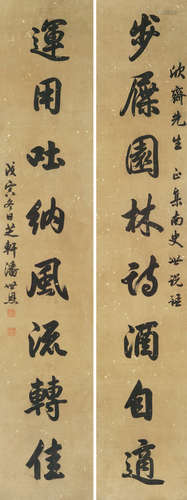 步屧園林詩酒自適
欣齋先生正集南史世說語
運用吐納風流轉佳
戊寅冬日芝軒潘世恩